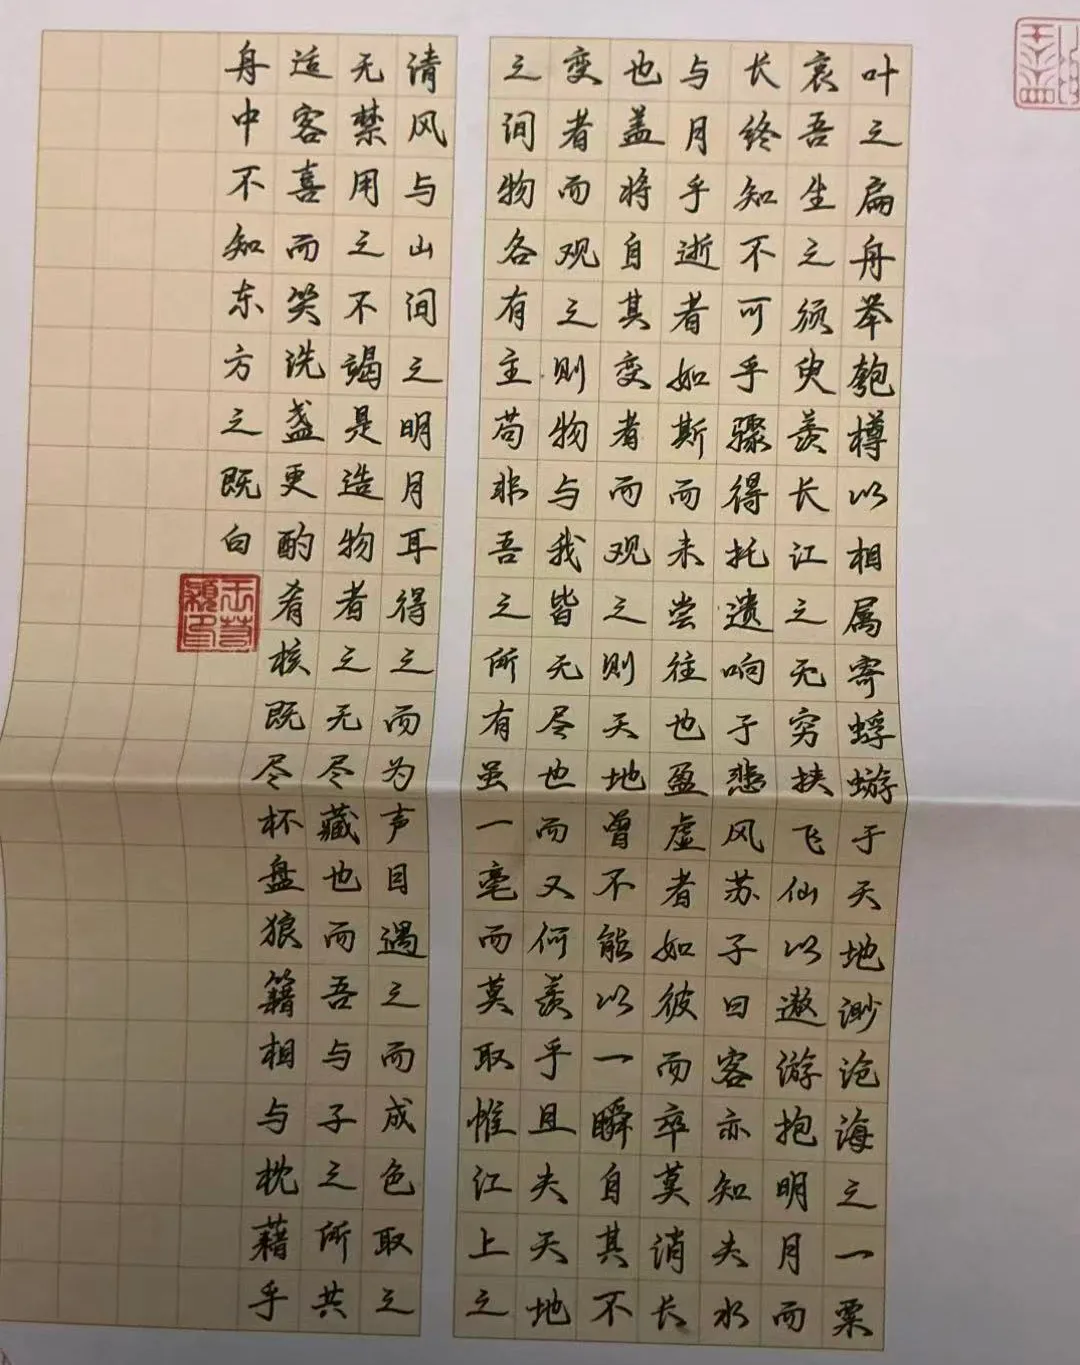 叶之扁舟举匏樽以相属寄蜉蝣于天地渺沧海之一粟
哀吾生之须臾羡长江之无穷挟飞仙以遨游抱明月而
长终知不可乎骤得托遗响于悲风苏子曰客亦知夫水
与月乎逝者如斯而未尝往也盈虚者如彼而卒莫消长
也盖将自其变者而观之则天地曾不能以一瞬自其不
变者而观之则物与我皆无尽也而又何羡乎且夫天地
之间物各有主苟非吾之所有虽一毫而莫取惟江上之
清风与山间之明月耳得之而为声目遇之而成色取之
无禁用之不竭是造物者之无尽藏也而吾与子之所共
适客喜而笑洗盏更酌肴核既尽杯盘狼籍相与枕藉乎
舟中不知东方之既白